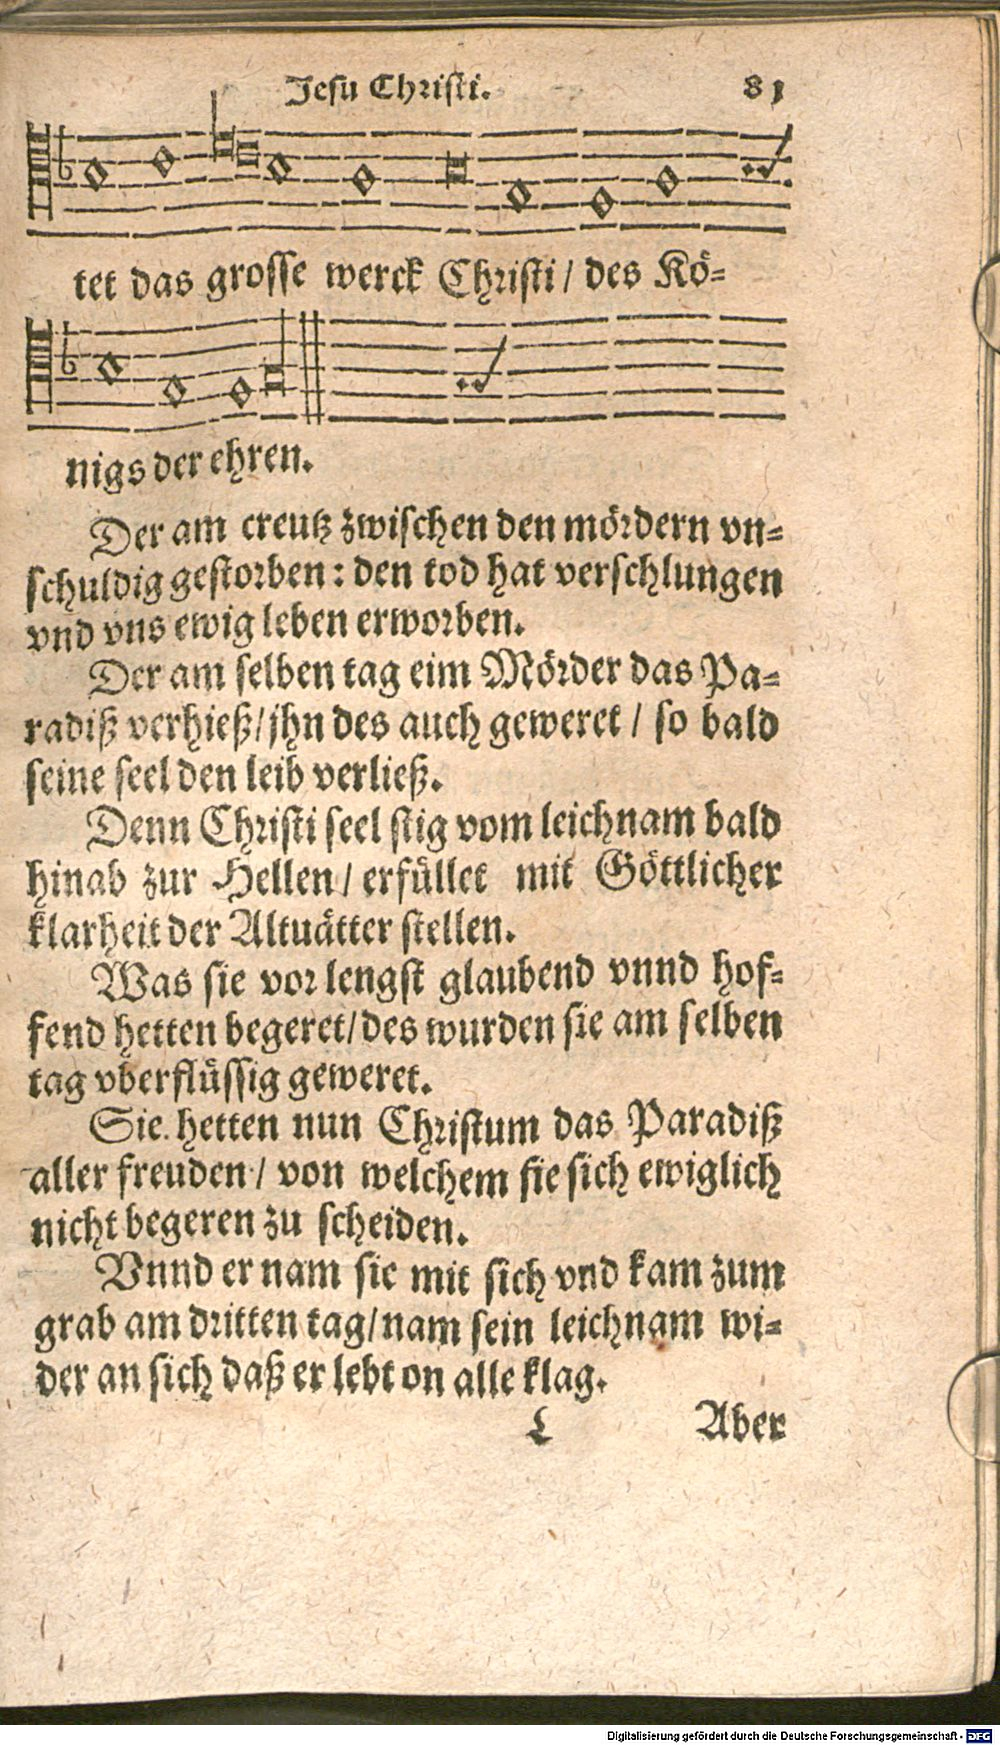 Jesu Christi. 81
tet das grosse werck Christi / des Kö-
nigs der ehren.
Der am creutz zwischen den mördern vn-
schuldig gestorben: den tod hat verschlungen
vnd vns ewig leben erworben.
Der am selben tag eim Mörder das Pa-
radiß verhieß/jhn des auch geweret / so bald
seine seel den leib verließ.
Denn Christi seel stig vom leichnam bald
hinab zur Hellen/ erfüllet mit Göttlicher
klarheit der Altuätter stellen.
Was sie vor lengst glaubend vnnd hof-
fend hetten begeret/des wurden sie am selben
tag vberflüssig geweret.
Sie hetten nun Christum das Paradiß
aller freuden/ von welchem sie sich ewiglich
nicht begeren zu scheiden.
Vnnd er nam sie mit sich vnd kam zum
grab am dritten tag/nam sein leichnam wi-
der an sich daß er lebt on alle klag.
L Aber
Digitalisierung gefördert durch die Deutsche Forschungsgemeinschaft - DFG